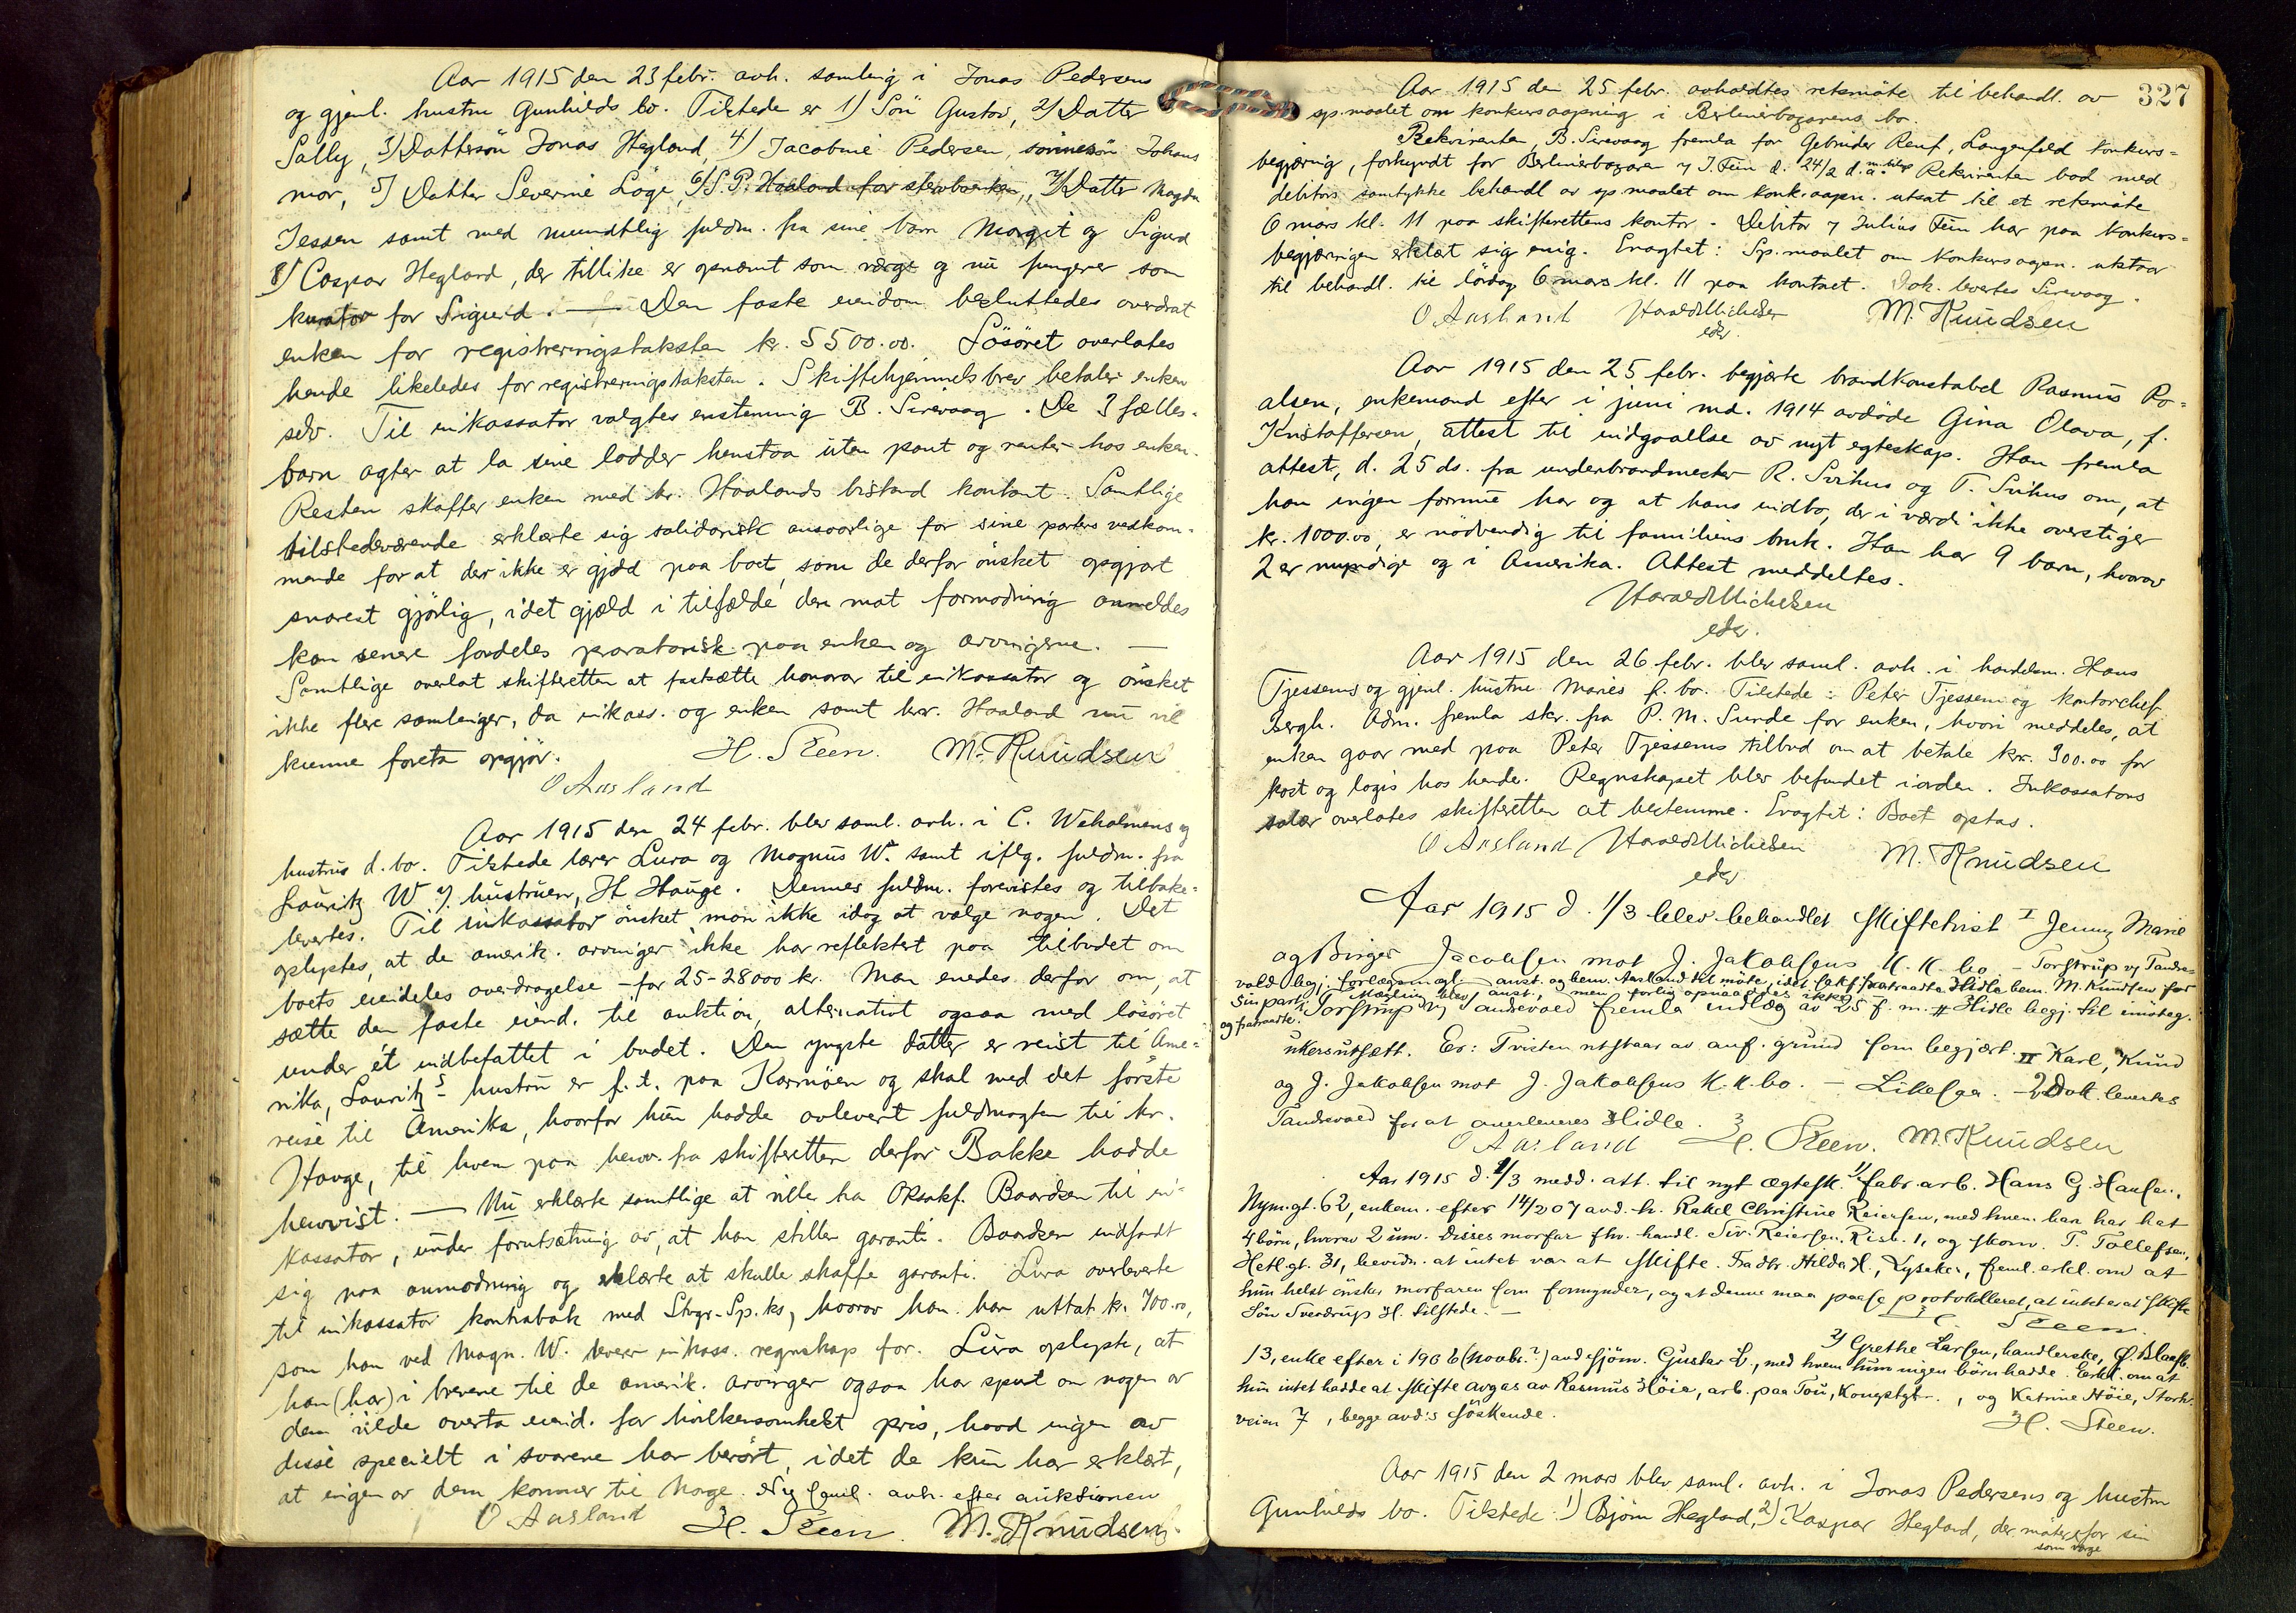 Aar 1915 den 23 febr. avh. samling i Jonas Pedersens
og gjenl. hustru Gunhilds bo. Tilstede er 1) Sön Gustav, 2) Datter
Sally, 3) Dattersön Jonas Hegland, 4) Jacobine Pedersen, sönnesön Johans
mor, 5) Datter Severine Löge, 6) S. P. Haaland for stervboenken, 7) Datter Magda
Jessen samt med mundtlig fuldm. fra sine barn Margit og Sigurd
8) Caspar Hegland, der tillike er opnævnt som værge og nu fungerer som
kurator for Sigurd. — Den faste eiendom besluttedes overdrat
enken for registreringstaksten kr. 5500.00. Lösöret overlates
hende likeledes for registreringstaksten. Skiftehjemmelsbrev betaler enken
selv. Til inkassator valgtes enstemmig B. Sirevaag. De 3 fælles-
barn agter at la sine lodder henstaa uten pant og renter hos enken.
Resten skaffer enken med hr. Haalands bistand kontant. Samtlige
tilstedeværende erklærte sig solidarisk ansvarlige for sine parters vedkom-
mende for at der ikke er gjæld paa boet, som de derfor önsket opgjort
snarest gjörlig, idet gjæld i tilfælde den mot formodning anmeldes
kan senere fordeles proratarisk paa enken og arvingerne. —
Samtlige overlot skifteretten at fastsætte honorar til inkassator og önsket
ikke flere samlinger, da inkass. og enken samt hr. Haaland nu vil
kunne foreta opgjör. H. Steen. M. Knudsen
O Aasland
Aar 1915 den 24 febr. blev saml. avh. i C. Weholmens og
hustrus d. bo. Tilstede lærer Lura og Magnus W. samt iflg. fuldm. fra
Lauritz W. v/ hustruen, H Hauge. Dennes fuldm. forevistes og tilbake-
levertes. Til inkassator önsket man ikke idag at vælge nogen. Det
oplystes, at de amerik. arvinger ikke har reflektert paa tilbudet om
boets eiendeles overdragelse - for 25-28000 kr. Man enedes derfor om, at
sætte den faste eiend. til auktion, alternativt ogsaa med lösöret
under ét indbefattet i budet. Den yngste datter er reist til Ame-
rika, Lauritz's hustru er f. t. paa Karmöen og skal med det förste
reise til Amerika, hvorfor hun hadde avlevert fuldmagten til hr.
Hauge, til hvem paa henv. fra skifteretten derfor Bakke hadde
henvist. — Nu erklærte samtlige at ville ha Oksakf. Baardsen til in-
kassator, under forutsætning av, at han stiller garanti. Baardsen indfandt
sig paa anmodning og erklærte at skulle skaffe garanti. Lura overleverte
til inkassator kontrabok med Stvgr. Sp.ks, hvorav han har uttat kr. 700.00,
som han ved Magn. W. leverer inkass. regnskap for. Lura oplyste, at
han (har) i brevene til de amerik. arvinger ogsaa har spurt om nogen av
dem vilde overta eiend. for hvilkensomhelst pris, hvad ingen av
disse specielt i svarene har berört, idet de kun har erklært,
at ingen av dem kommer til Norge. Ny saml. avh. efter auktionen
O Aasland H. Steen M. Knudsen.
327
Aar 1915 den 25 febr. avholdtes retsmöte til behandl. av
sp.maalet om konkursaapning i Berlinerbazarens bo.
Rekvirenten, B. Sirevaag fremla for Gebrüder Renf, Langenfeld konkurs-
begjæring, forkyndt for Berlinerbazaren v/ J. Fein d. 24/2 d. a. m. bilag Rekvirenten bad med
debitors samtykke behandl av sp.maalet om konk.aapn. utsat til et retsmöte
6 mars kl. 11 paa skifterettens kontor. Debitor v/ Julius Fein har paa konkurs-
begjæringen erklært sig enig. Eragtet: Sp.maalet om konkursaapn. utstaar
til behandl. til lördag 6 mars kl. 11 paa kontoret. Dok. levertes Sirevaag.
O Aasland Harald Michelsen M. Knudsen
edsv.
Aar 1915 den 25 febr. begjærte brandkonstabel Rasmus Po-
alsen, enkemand efter i juni md. 1914 avdöde Gina Olava, f.
Kristoffersen, attest til indgaaelse av nyt egteskap. Han fremla
attest, d. 25 ds. fra underbrandmester R. Svihus og T. Svihus om, at
han ingen formue har og at hans indbo, der i værdi ikke overstiger
kr. 1000.00, er nödvendig til familiens bruk. Han har 9 barn, hvorav
2 er myndige og i Amerika. Attest meddeltes.
Harald Michelsen
edsv.
Aar 1915 den 26 febr. blev saml. avh. i handelsm. Hans
Tjessems og gjenl. hustru Maries f. bo. Tilstede: Peter Tjessem og kontorchef
Bergh. Adm. fremla skr. fra P. M. Sunde for enken, hvori meddeles, at
enken gaar med paa Peter Tjessems tilbud om at betale kr. 300.00 for
kost og logis hos hende. Regnskapet blev befundet iorden. Inkassators
salær overlates skifteretten at bestemme. Eragtet: Boet optas.
O Aasland Harald Michelsen M. Knudsen
edsv
Aar 1915 d. 1/3 blev behandlet skiftetvist I Jenny Marie
og Birger Jacobsen mot J. Jakobsens K. K. bo. - Torstrup v/ Tandse-
vold begj. forlægsmægl. anst. og benv. Aasland til möte, idet sakf. fratraadte Hidle bem. M. Knudsen for
sin part. Mægling blev anst., men forlig opnaaedes ikke
og fratraadte. Torstrup v/ Tandsevold fremla indlæg av 25 f. m. Hidle begj. til imöteg.
ukersutsætt. Er: Tvisten utstaar av anf. grund som begjært. II Karl, Knud
og J. Jakobsen mot J. Jakobsens K. K. bo. - Likesaa. - 2 Dok. levertes
Tandsevold for at overleveres Hidle.
O Aasland H. Steen. M. Knudsen
Aar 1915 d. 2/3 medd. att. til nyt ægtesk. 1) fabr.arb. Hans G. Hansen,
Nym.gt. 62, enkem. efter 14/2 07 avd. h. Rakel Christine Reiersen, med hvem han har hat
4 börn, hvorav 2 umv. Disses morfar fhv. handl. Siv. Reiersen, Risb. 1, og skom. T. Tollefsen,
Hetl.gt. 31, bevidn. at intet var at skifte. Fra dtr. Hilda H., Lysaker, freml. erkl. om at
hun helst önsker morfaren som formynder, og at denne maa paase protokolleret, at intet er at skifte
Sön Sverdrup H. tilstede. — Steen.
2) Grethe Larsen, handlerske, Ø. Blaasb.
13, enke efter i 1906 (novbr.?) avd sjöm. Gustav L., med hvem hun ingen börn hadde. Erkl. om at
hun intet hadde at skifte avgas av Rasmus Höie, arb. paa Tou, Kongstgt. , og Katrine Höie, Stork.
veien 7, begge avd.s söskende.
H. Steen.
Aar 1915 den 2 mars blev saml. avh. i Jonas Pedersens og hustru
Gunhilds bo. Tilstede: 1) Björn Hegland, 2) Kaspar Hegland, der möter for sin
som værge